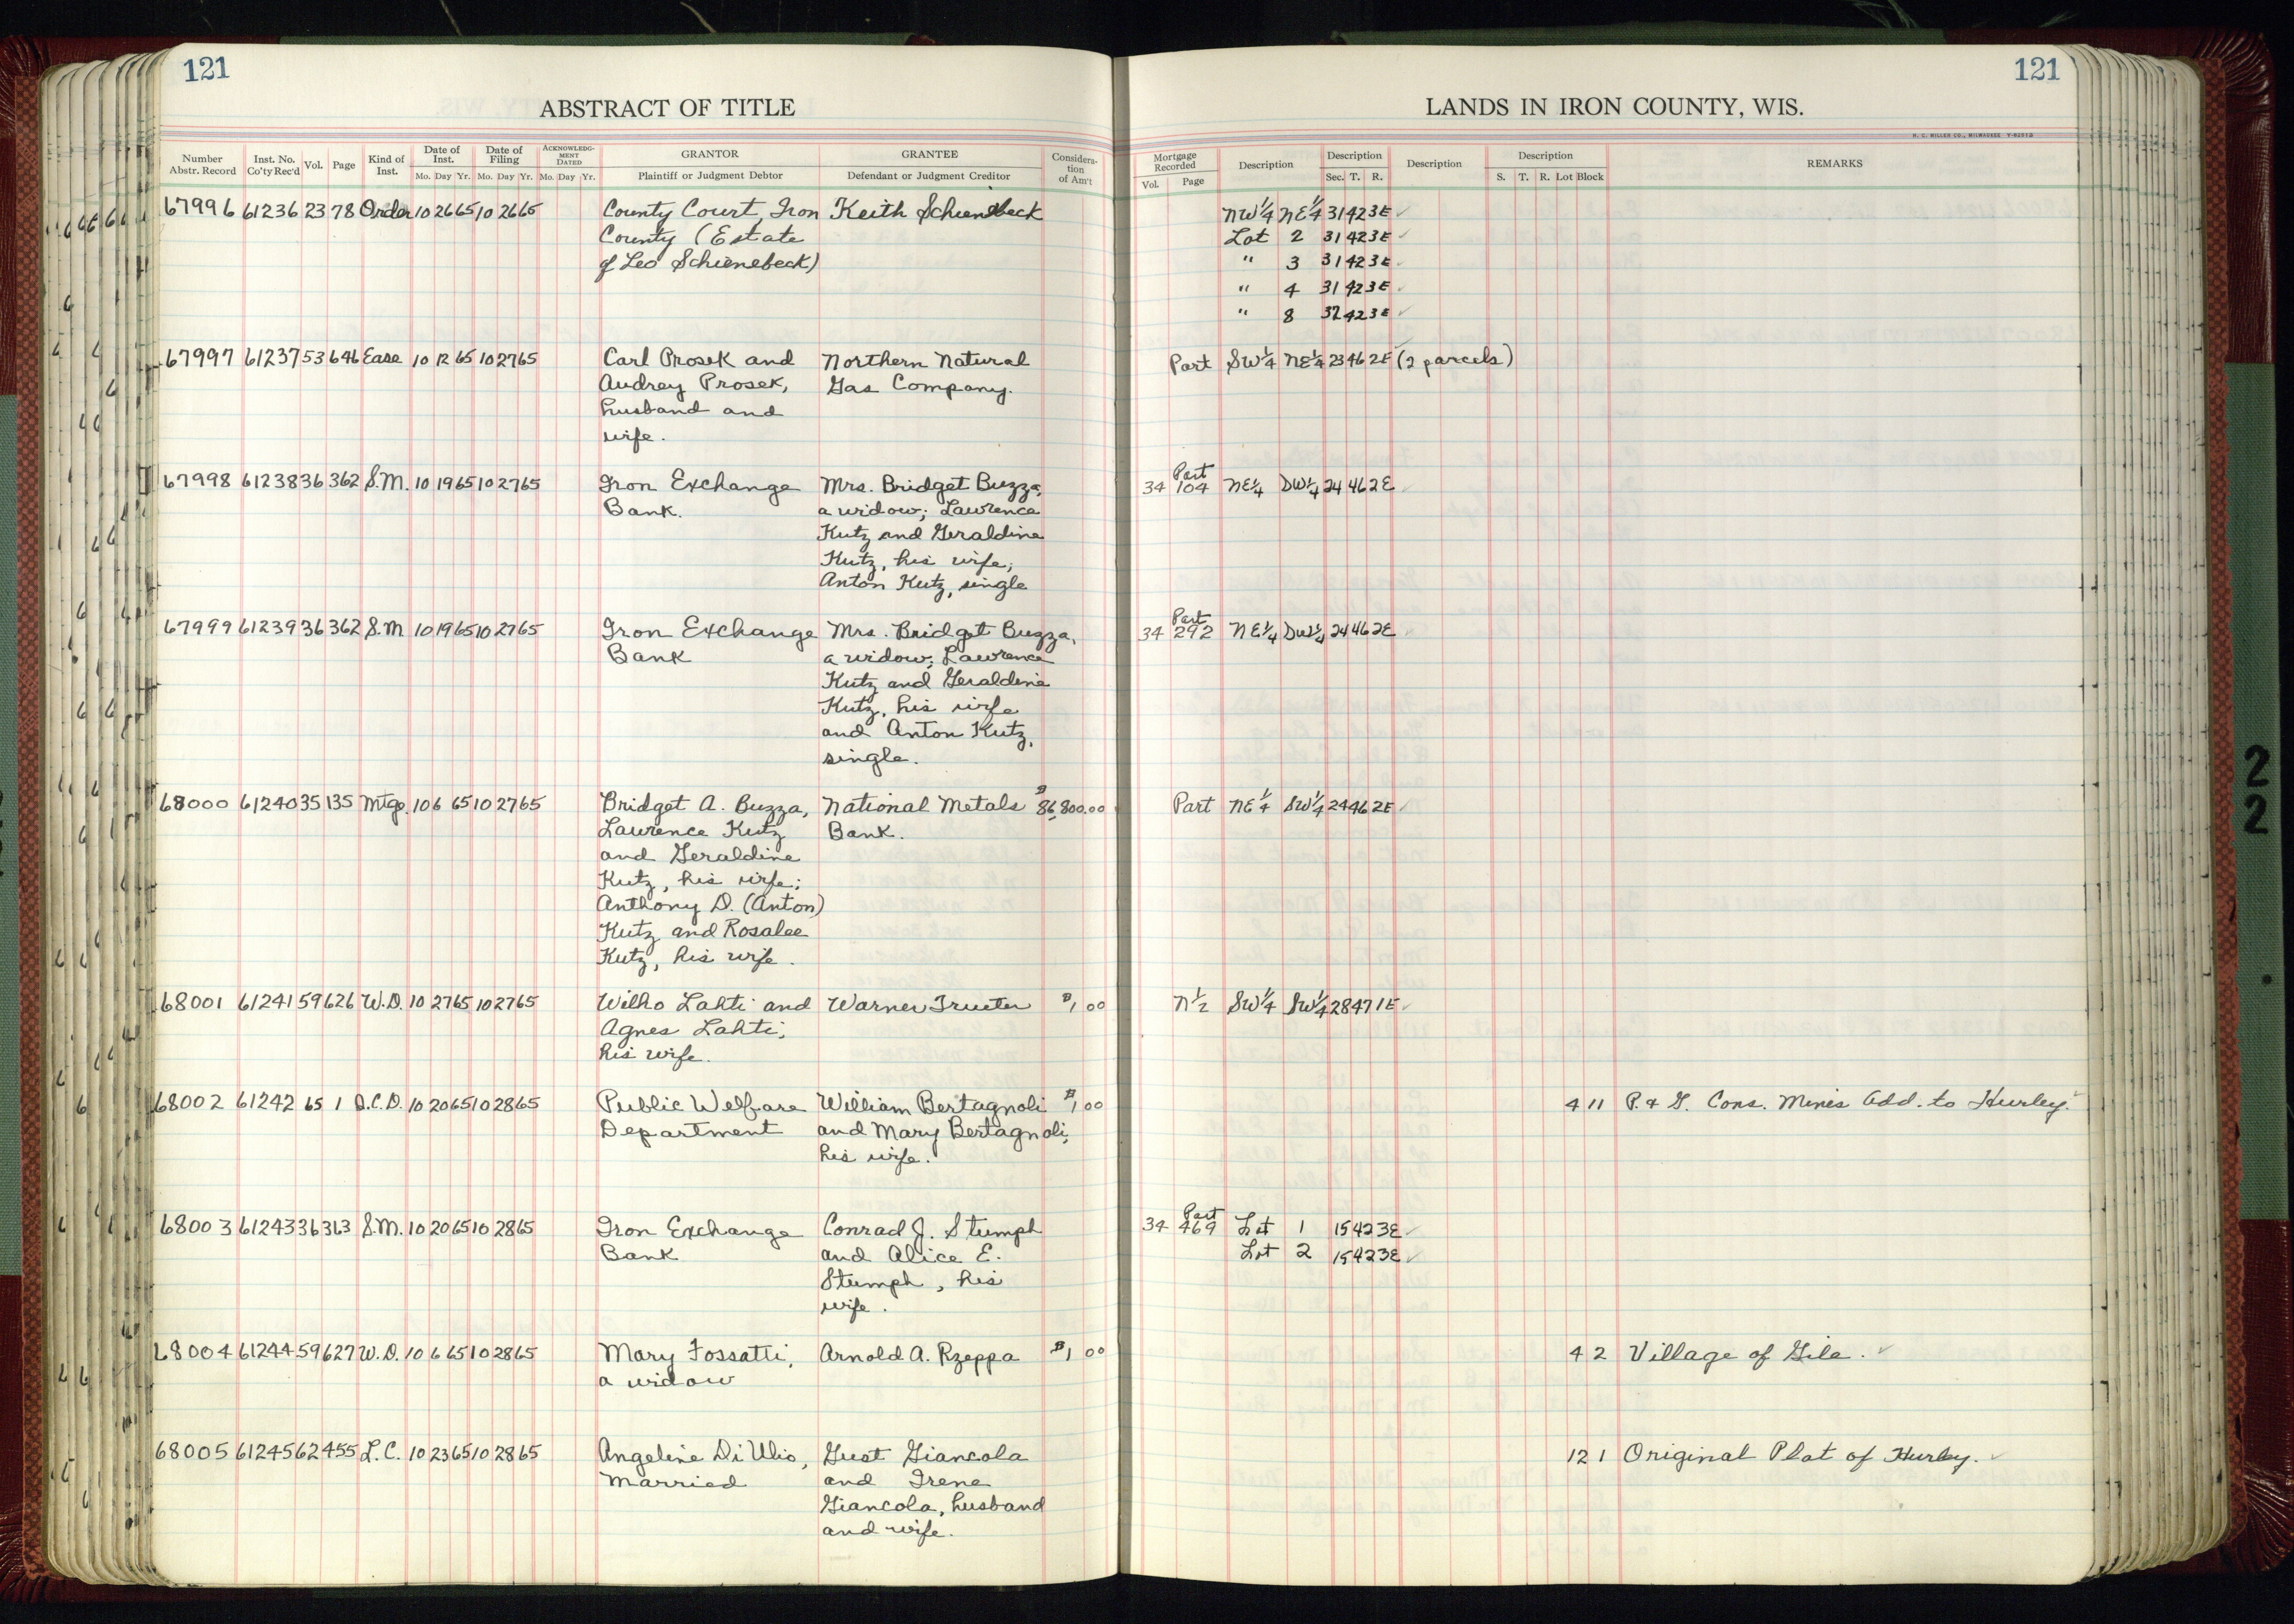 121
ABSTRACT OF TITLE
Number Abstr. Record Inst. No. Co'ty Rec'd Vol. Page Kind of Inst. Date of Inst. Mo. Day Yr. Date of Filing Mo. Day Yr. ACKNOWLEDG-MENT DATED Mo. Day Yr. GRANTOR Plaintiff or Judgment Debtor GRANTEE Defendant or Judgment Creditor Considera-tion of Am't
67996 61236 23 78 Order 10 26 65 10 26 65 County Court, Iron Keith Schienebeck
County (Estate
of Leo Schienebeck)
67997 61237 53 646 Ease 10 12 65 10 27 65 Carl Prosek and Northern Natural
Audrey Prosek, Gas Company.
husband and
wife.
67998 61238 36 362 S.M. 10 19 65 10 27 65 Iron Exchange Mrs. Bridget Buzza,
Bank. a widow; Lawrence
Kutz and Geraldine
Kutz, his wife;
Anton Kutz, single
67999 61239 36 362 S.M 10 19 65 10 27 65 Iron Exchange Mrs. Bridget Buzza,
Bank a widow; Lawrence
Kutz and Geraldine
Kutz, his wife
and Anton Kutz,
single.
68000 61240 35 135 Mtge. 10 6 65 10 27 65 Bridget A. Buzza, National Metals $86,800.00
Lawrence Kutz Bank.
and Geraldine
Kutz, his wife;
Anthony D. (Anton)
Kutz and Rosalee
Kutz, his wife.
68001 61241 59 626 W.D. 10 27 65 10 27 65 Wilho Lahti and Warner Trueter $1.00
Agnes Lahti,
his wife.
68002 61242 65 1 Q.C.D. 10 20 65 10 28 65 Public Welfare William Bertagnoli $1.00
Department and Mary Bertagnoli,
his wife.
68003 61243 36 363 S.M. 10 20 65 10 28 65 Iron Exchange Conrad J. Stumph
Bank and Alice E.
Stumph, his
wife.
68004 61244 59 627 W.D. 10 6 65 10 28 65 Mary Fossatti, Arnold A. Rzeppa $1.00
a widow
68005 61245 62 455 L.C. 10 23 65 10 28 65 Angeline Di Ulio, Gust Giancola
married and Irene
Giancola, husband
and wife.
121
LANDS IN IRON COUNTY, WIS.
H. C. MILLER CO., MILWAUKEE
Mortgage Recorded Vol. Page Description Description Sec. T. R. Description Description S. T. R. Lot Block REMARKS
NW¼ NE¼ 31 42 3E ✓
Lot 2 31 42 3E ✓
" 3 31 42 3E ✓
" 4 31 42 3E ✓
" 8 32 42 3E ✓
Part SW¼ NE¼ 23 46 2E (2 parcels)
Part
34 104 NE¼ SW¼ 24 46 2E ✓
Part
34 292 NE¼ SW¼ 24 46 2E ✓
Part NE¼ SW¼ 24 46 2E ✓
N½ SW¼ SW¼ 28 47 1E ✓
4 11 P. & G. Cons. Mines Add. to Hurley.
Part
34 469 Lot 1 15 42 3E ✓
Lot 2 15 42 3E ✓
4 2 Village of Gile. ✓
12 1 Original Plat of Hurley. ✓
2
2